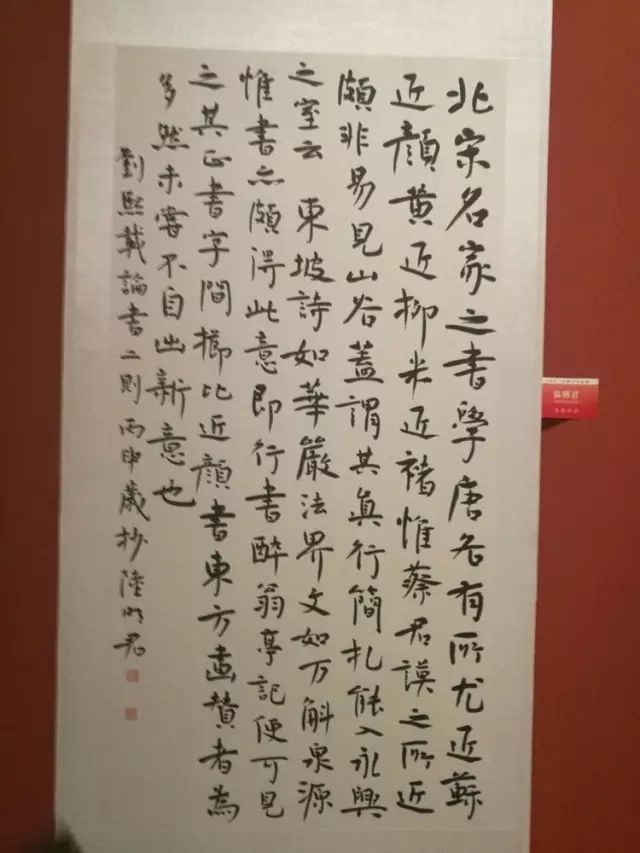 北宋名家之書學唐各有所尤近蘇
近顔黄近柳米近褚惟蔡君謨之所近
頗非易見山谷蓋謂其真行簡札能入永興
之室云 東坡詩如華嚴法界文如万斛泉源
惟書亦頗得此意即行書醉翁亭記便可見
之其正書字間櫛比近顔書東方畫贊者為
多然未嘗不自出新意也
劉熙載論書二則丙申歲抄陸明君